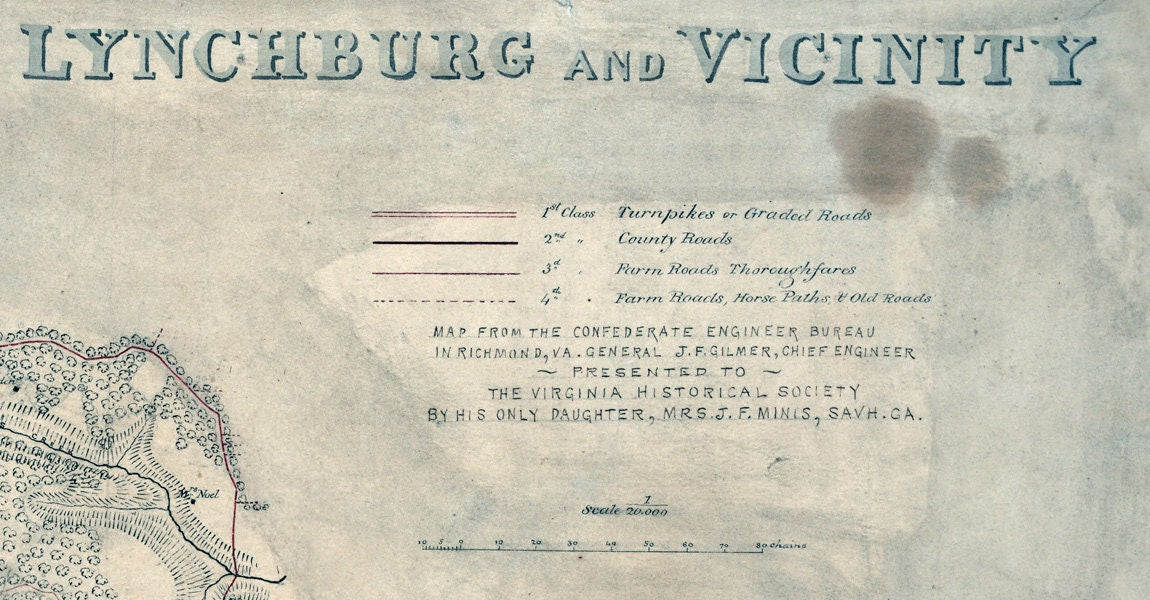 LYNCHBURG AND VICINITY
1st Class Turnpikes or Graded Roads
2nd „ County Roads
3d . Farm Roads Thoroughfares
4th . Farm Roads, Horse Paths, & Old Roads
MAP FROM THE CONFEDERATE ENGINEER BUREAU
IN RICHMOND, VA. GENERAL J.F. GILMER, CHIEF ENGINEER
~ PRESENTED TO ~
THE VIRGINIA HISTORICAL SOCIETY
BY HIS ONLY DAUGHTER, MRS. J. F. MINIS, SAVH. GA.
Mrs Noel
Scale 1/20.000
10 5 0 10 20 30 40 50 60 70 80 chains